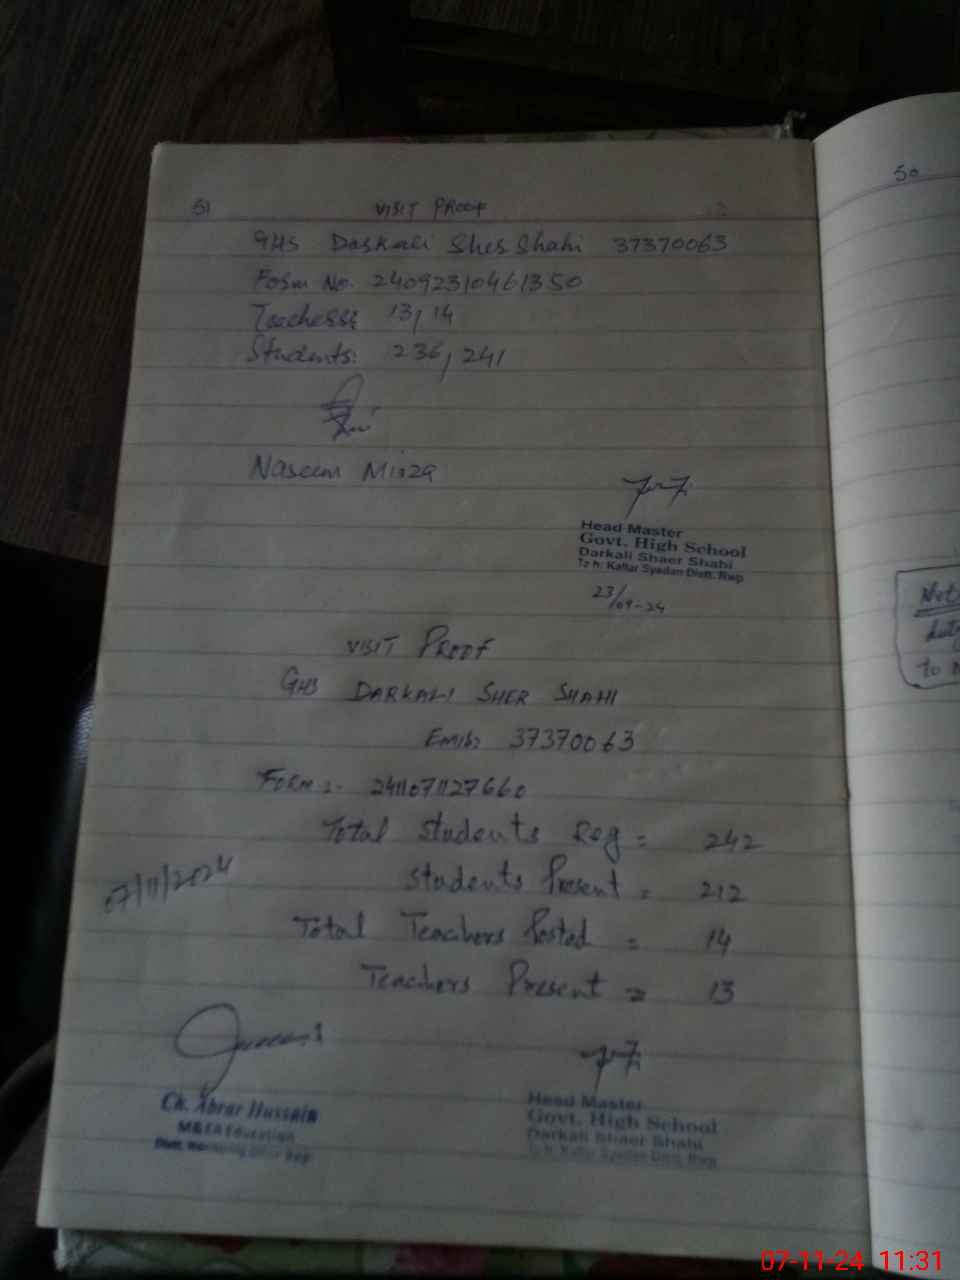 51
VISIT PROOF
GHS Darkali Sher Shahi 37370063
Form No. 24092310461350
Teachers: 13, 14
Students: 236, 241
Naseem Mirza
Head Master
Govt. High School
Darkali Shaer Shahi
Tz h: Kallar Syedan Distt. Rwp
23/09-24
VISIT PROOF
GHS DARKALI SHER SHAHI
Emis: 37370063
FORM :- 2411071127660
Total Students Reg = 242
07/11/2024
Students Present = 212
Total Teachers Posted = 14
Teachers Present = 13
Ch. Abrar Hussain
M&EA Education
Head Master
Govt. High School
Darkali Shaer Shahi
Tz h: Kallar Syedan Distt. Rwp
50
to
07-11-24 11:31